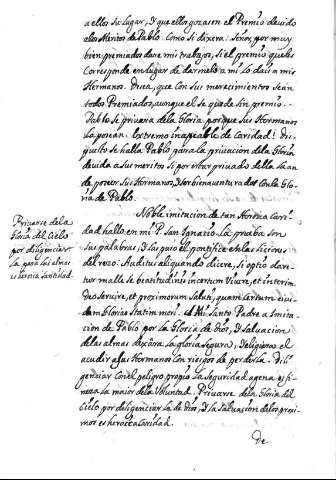 a ellos su lugar, y que ellos gozasen el Premio devido
a los Meritos de Pablo. Como si dixera: Señor, por muy
bien premiados dare mi trabajos, si el premio que les
Corresponde en lugar de darmelo a mi lo dais a mis
Hermanos. Desea, que con sus merecimientos sean
todos Premiados, aunque el se quede sin premio.
Pablo se privaria de la Gloria, porque sus Hermanos
la posean. Extremo inapeable de Caridad! Dis-
puesto se halla Pablo para la privacion de la Gloria
devida a sus meritos si por estar privado della an
de poseer sus Hermanos, y ser bienaventurados con la Glo
ria de Pablo.
Noble imitacion de tan Heroica Cari-
dad hallo en mi P. San Ignacio. La prueba son
sus palabras, y las que el Pontifice en las liciones
del rezo. Auditus aliquando dicere, si optio dare
tur malle se beatitudinis incertum vivere, et interim
Deo servire, et proximorum saluti, quam certum eius-
dem Gloriae statim mori. El mi Santo Padre a Imita
cion de Pablo por la Gloria de Dios, y Salvacion
de las almas dexara la gloria segura, y eligiera el
acudir a las Hermanos con riesgos de perderla. Dili
genciar con el peligro propio la seguridad agena es fi
neza la maior de la Voluntad. Privarse de la Gloria del
Cielo por diligenciar la de Dios, y la salvacion de los proxi
mos es heroica Caridad.
Privarse de la
Gloria del Cielo
por diligenciar
la para las almas
heroica Santidad.
de